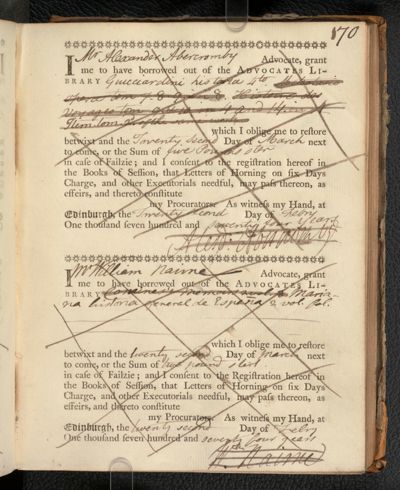 170
I Mr Alexander Abercromby Advocate, grant
me to have borrowed out of the ADVOCATES LI-
BRARY Guicciardini historia 4to
which I oblige me to restore
betwixt and the Twenty second Day of March next
to come, or the Sum of five
in case of Failzie; and I consent to the registration hereof in
the Books of Session, that Letters of Horning on six Days
Charge, and other Executorials needful, may pass thereon, as
effeirs, and thereto constitute
my Procurators. As witness my Hand, at
Edinburgh, the Twenty second Day of Febry
One thousand seven hundred and seventy four years
Alexr Abercromby
I Mr William Nairne Advocate, grant
me to have borrowed out of the ADVOCATES LI-
BRARY Maria-
na historia general de España 2 vol. fol.
which I oblige me to restore
betwixt and the twenty second Day of March next
to come, or the Sum of two pound sterl.
in case of Failzie; and I consent to the Registration hereof in
the Books of Session, that Letters of Horning on six Days
Charge, and other Executorials needful, may pass thereon, as
effeirs, and thereto constitute
my Procurators. As witness my Hand, at
Edinburgh, the twenty second Day of Febry
One thousand seven hundred and seventy four years
W. Nairne